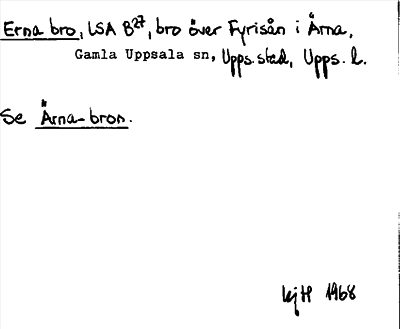 Erna bro, LSA B27, bro över Fyrisån i Ärna,
Gamla Uppsala sn, Upps. stad, Upps. l.
Se Ärna-bron.
1968